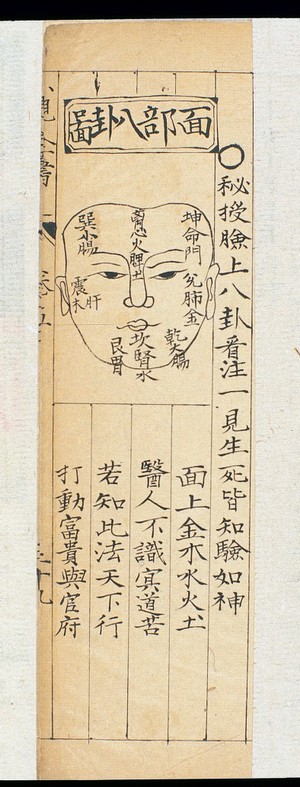 面部八卦啚
秘授臉上八卦看注一見生死皆知驗如神
坤命門
兌肺金
乾大腸
心火脾土
坎腎水
艮胃
巽小腸
震肝木
面上金木水火土
醫人不識冥道苦
若知此法天下行
打動富貴與官府
卷五